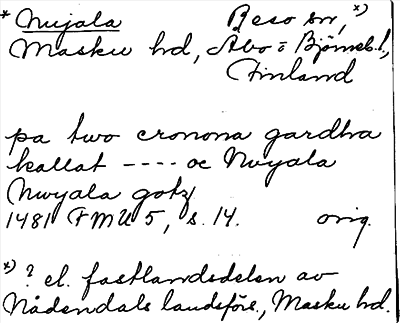 * Nujala Reso sn, *)
Masku hd, Åbo o Björneb. l.,
Finland
pa two cronona gardha
kallat ---- oc Nwyala
Nwyala gotz
1481 FMU 5, s. 14. orig.
*) ? el. fastlandsdelen av
Nådendals landsförs., Masku hd.